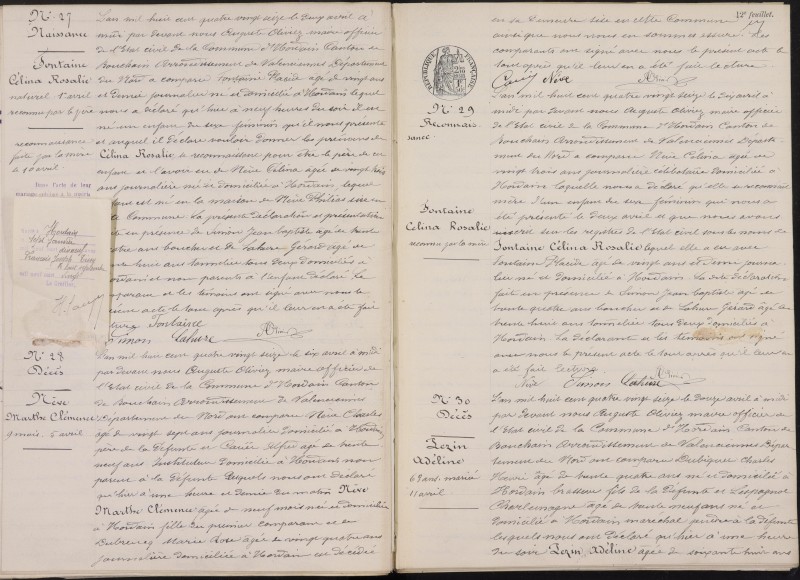 N° 27
Naissance
Fontaine
Célina Rosalie
naturel 1er avril
reconnue par le père
reconnaissance
faite par la mère
le 10 avril
L'an mil huit cent quatre vingt seize le deux avril à
midi par devant nous Auguste Oliviez maire officier
de l'Etat civil de la Commune d'Hordain Canton de
Bouchain Arrondissement de Valenciennes Département
du Nord a comparu Fontaine Placide âgé de vingt ans
et demi journalier né et domicilié à Hordain lequel
nous a déclaré qu'hier à neuf heures du soir il est
né un enfant du sexe féminin qu'il nous présente
et auquel il déclare vouloir donner les prénoms de
Célina Rosalie se reconnaissant pour être le père de cet
enfant et l'avoir eu de Néve Célina âgée de vingt trois
ans journalière née et domiciliée à Hordain lequel
enfant est né en la maison de Néve sise en
cette Commune La présente déclaration et présentation
en présence de Simon Jean baptiste âgé de trente
quatre ans boucher et de Lahure Gérard âgé de
huit ans tonnelier tous deux domiciliés à
Hordain et non parents à l'enfant déclaré Le
comparant et les témoins ont signé avec nous le
présent acte le tout après qu'il leur en a été fait
lecture Fontaine
Simon Lahure
N° 28
Décès
Néve
Marthe Clémence
9 mois, 5 avril
L'an mil huit cent quatre vingt seize le six avril à midi
par devant nous Auguste Oliviez maire officier de
l'Etat civil de la Commune d'Hordain Canton
de Bouchain Arrondissement de Valenciennes
Département du Nord ont comparu Néve Charles
âgé de vingt sept ans journalier domicilié à Hordain
père de la défunte et âgé de trente
neuf ans instituteur domicilié à Hordain non
parent à la défunte lesquels nous ont déclaré
qu'hier à une heure et demie du matin Néve
Marthe Clémence âgée de neuf mois née et domiciliée
à Hordain fille du premier comparant et de
Marie Rose âgée de vingt quatre ans
journalière domiciliée à Hordain est décédée
12e feuillet.
en sa demeure sise en cette Commune
ainsi que nous nous en sommes assuré Les
comparants ont signé avec nous le présent acte le
tout après qu'il leur en a été fait lecture
Néve
RÉPUBLIQUE FRANÇAISE
N° 29
Reconnais-
sance
Fontaine
Célina Rosalie
reconnue par la mère
L'an mil huit cent quatre vingt seize le dix avril à
midi par devant nous Auguste Oliviez maire officier
de l'Etat civil de la Commune d'Hordain Canton de
Bouchain Arrondissement de Valenciennes Départe-
ment du Nord a comparu Néve Célina âgée de
vingt trois ans journalière célibataire domiciliée à
Hordain laquelle nous a déclaré qu'elle se reconnait
mère d'un enfant du sexe féminin qui nous a
été présenté le deux avril et que nous avons
inscrit sur les registres de l'Etat civil sous les noms de
Fontaine Célina Rosalie lequel elle a eu avec
Fontaine Placide âgé de vingt ans et demi journa-
lier né et domicilié à Hordain La dite déclaration
fait en présence de Simon Jean baptiste âgé de
trente quatre ans boucher et de Lahure Gérard âgé de
huit ans tonnelier tous deux domiciliés à
Hordain La déclarant et les témoins ont signé
avec nous le présent acte le tout après qu'il leur en
a été fait lecture
Néve Simon Lahure
N° 30
Décès
Lezin
Adéline
68 ans, mariée
11 avril
L'an mil huit cent quatre vingt seize le douze avril à midi
par devant nous Auguste Oliviez maire officier de
l'Etat civil de la Commune d'Hordain Canton de
Bouchain Arrondissement de Valenciennes Dépar-
tement du Nord ont comparu Charles
Henri âgé de trente quatre ans né et domicilié à
Hordain brasseur fils de la défunte et Lespagnol
Charlemagne âgé de trente neuf ans né et
domicilié à Hordain maréchal gendre à la défunte
lesquels nous ont déclaré qu'hier à une heure
du soir Lezin Adéline âgée de soixante huit ans